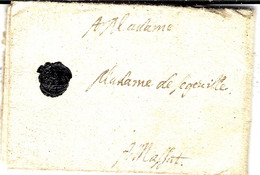 A Madame
Madame de
A Massat.